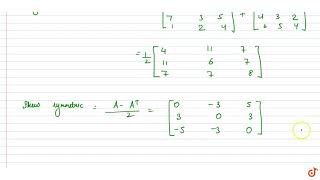 [7 3 5] + [4 3 2]
[1 2 4] [6 5 4]
= 1/2 [4 11 7]
[11 6 7]
[7 7 8]
Skew symmetric = A - Aᵀ / 2 = [0 -3 5]
[3 0 3]
[-5 -3 0]